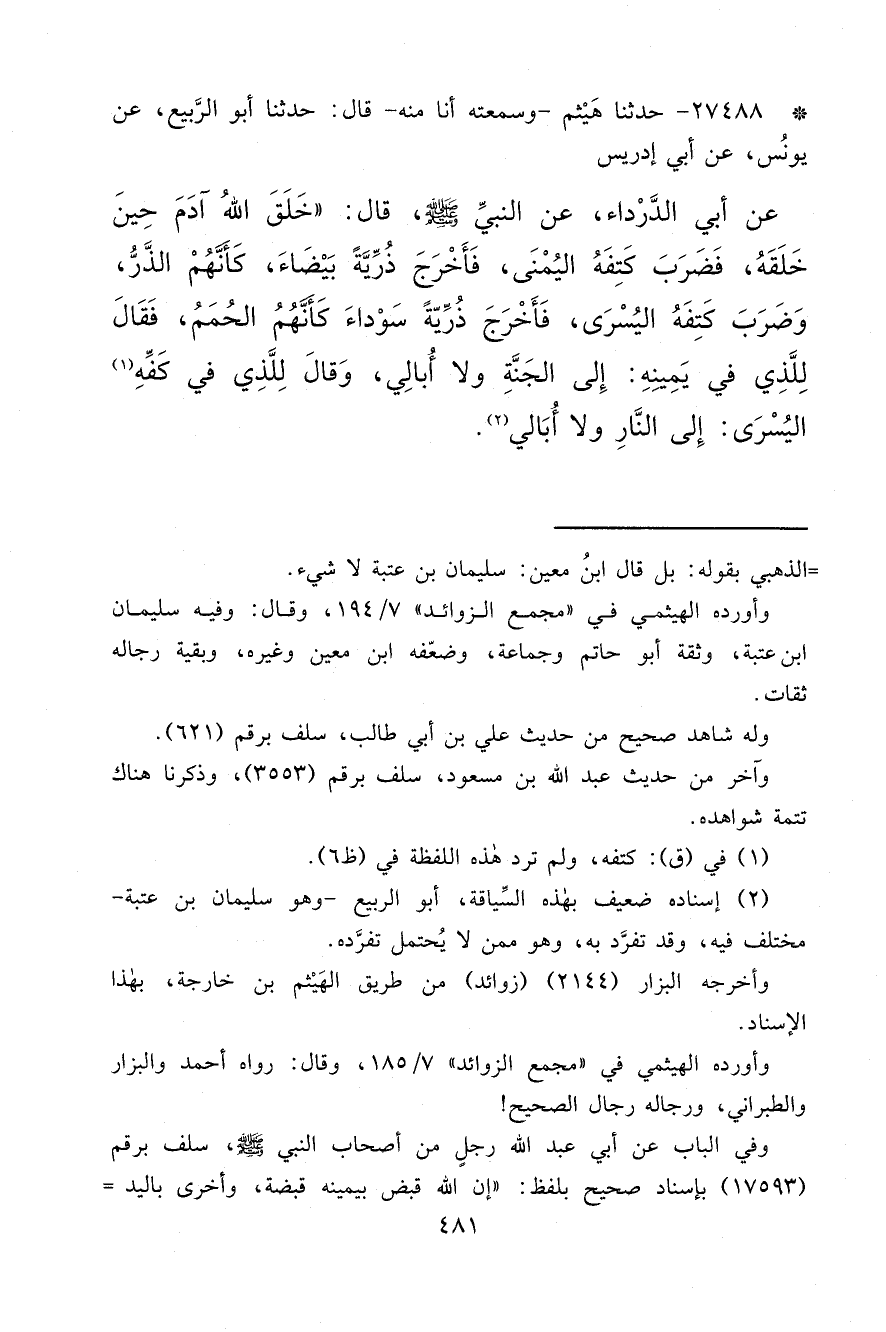 * ٢٧٤٨٨- حدثنا هَيْثم -وسمعته أنا منه- قال: حدثنا أبو الرَّبيع، عن
يونُس، عن أبي إدريس
عن أبي الدَّرْداء، عن النبيِّ ﷺ، قال: «خَلَقَ اللهُ آدَمَ حِينَ
خَلَقَهُ، فَضَرَبَ كَتِفَهُ اليُمْنَى، فَأَخْرَجَ ذُرِّيَّةً بَيْضَاءَ، كَأَنَّهُمْ الذَّرُّ،
وَضَرَبَ كَتِفَهُ اليُسْرَى، فَأَخْرَجَ ذُرِّيّةً سَوْداءَ كَأَنَّهُمُ الحُمَمُ، فَقَالَ
لِلَّذِي في يَمِينِهِ: إِلى الجَنَّةِ ولا أُبالِي، وَقَالَ لِلَّذِي في كَفِّهِ(١)
اليُسْرَى: إِلى النَّارِ ولا أُبَالي(٢).
=الذهبي بقوله: بل قال ابنُ معين: سليمان بن عتبة لا شيء.
وأورده الهيثمي في «مجمع الزوائد» ١٩٤/٧، وقال: وفيه سليمان
ابن عتبة، وثقة أبو حاتم وجماعة، وضعّفه ابن معين وغيره، وبقية رجاله
ثقات.
وله شاهد صحيح من حديث علي بن أبي طالب، سلف برقم (٦٢١).
وآخر من حديث عبد الله بن مسعود، سلف برقم (٣٥٥٣)، وذكرنا هناك
تتمة شواهده.
(١) في (ق): كتفه، ولم ترد هٰذه اللفظة في (ظ٦).
(٢) إسناده ضعيف بهٰذه السِّياقة، أبو الربيع -وهو سليمان بن عتبة-
مختلف فيه، وقد تفرَّد به، وهو ممن لا يُحتمل تفرَّده.
وأخرجه البزار (٢١٤٤) (زوائد) من طريق الهَيْثم بن خارجة، بهٰذا
الإسناد.
وأورده الهيثمي في «مجمع الزوائد» ١٨٥/٧، وقال: رواه أحمد والبزار
والطبراني، ورجاله رجال الصحيح!
وفي الباب عن أبي عبد الله رجلٍ من أصحاب النبي ﷺ، سلف برقم
(١٧٥٩٣) بإسناد صحيح بلفظ: «إن الله قبض بيمينه قبضة، وأخرى باليد =
٤٨١